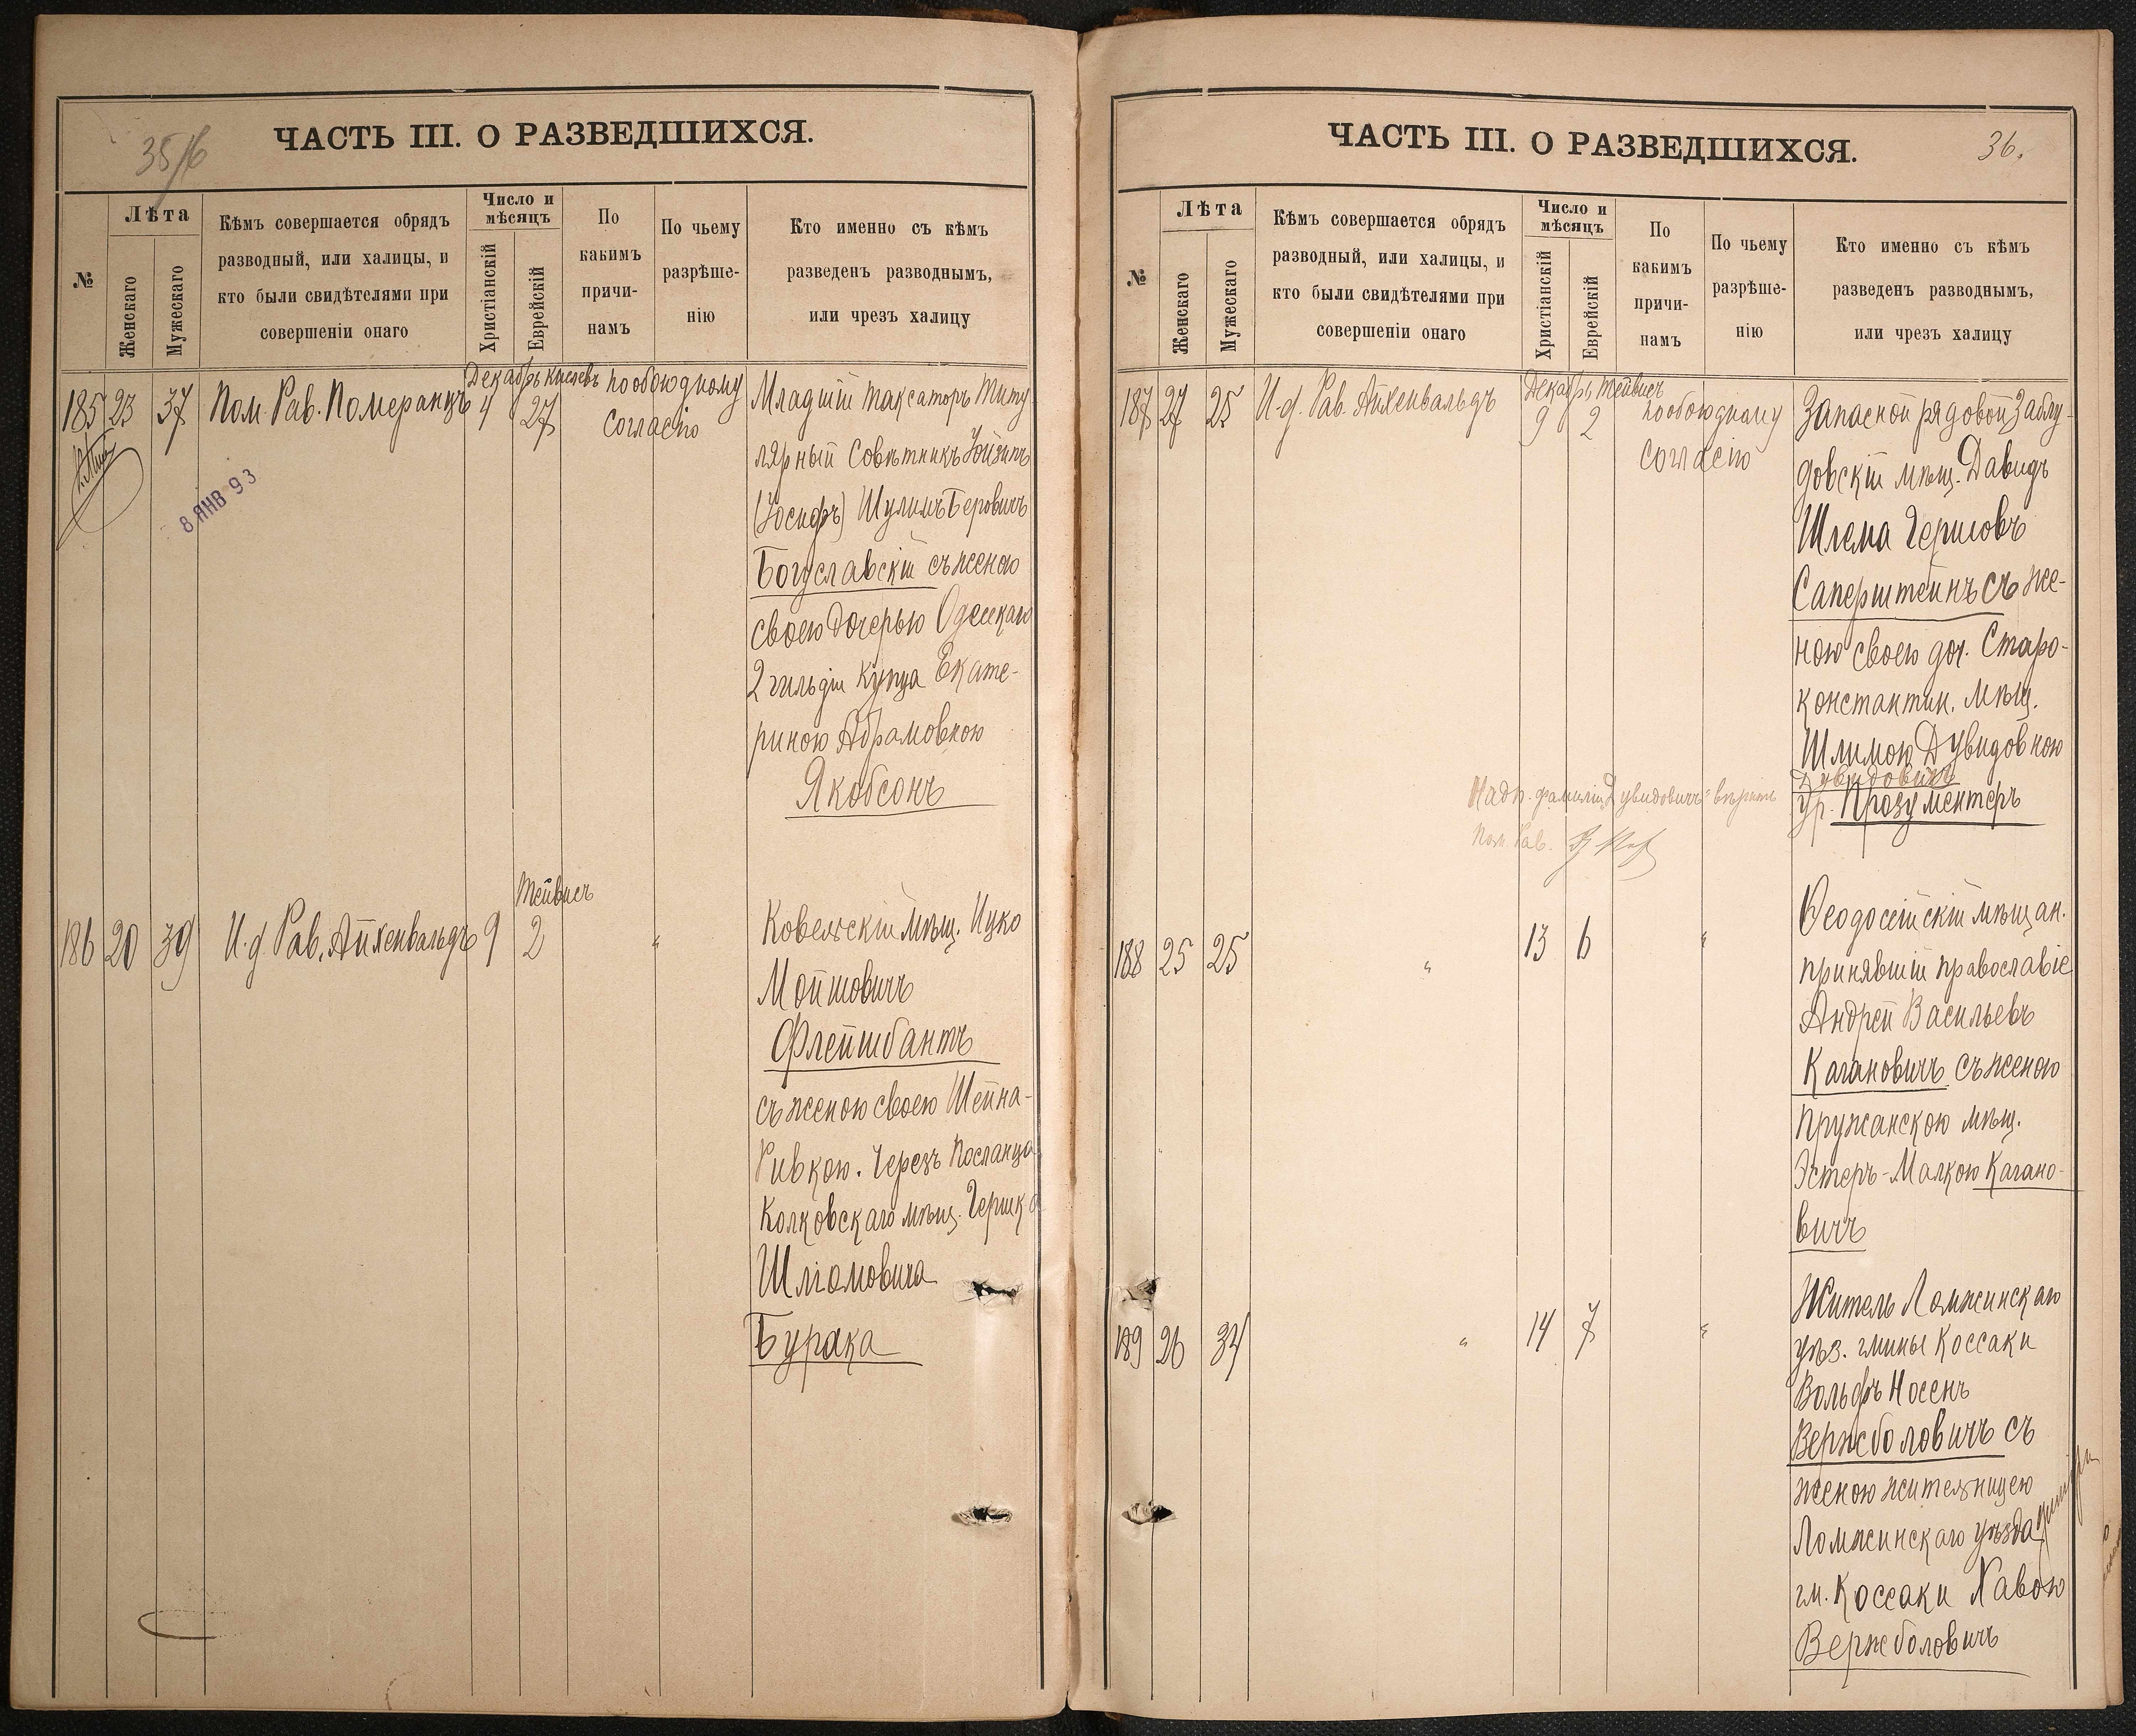 35/6
ЧАСТЬ III. О РАЗВЕДШИХСЯ.
№
Лѣта
Женскаго
Мужескаго
Кѣмъ совершается обрядъ
разводный, или халицы, и
кто были свидѣтелями при
совершеніи онаго
Число и
мѣсяцъ
Христіанскій
Еврейскій
По
какимъ
причи-
намъ
По чьему
разрѣше-
нію
Кто именно съ кѣмъ
разведенъ разводнымъ,
или чрезъ халицу
185 23 37 Пом. Рав. Померанцъ
Декабрь Кислевъ
4 27
по обоюдному
согласію
8 ЯНВ 93
Младшій таксаторъ Титу
лярный Совѣтникъ Іойзипъ
(Іосифъ) Шулимъ Беровичъ
Богуславскій съ женою
своею дочерью Одесскаго
2 гильдіи купца Екате-
риною Абрамовною
Якобсонъ
186 20 39 И. д. Рав. Айхенвальдъ 9
Тейвисъ
2
"
Ковельскій мѣщ. Ицко
Мошковичъ
Флейшбантъ
съ женою своею Шейна-
Ривкою. Черезъ посланца
Колковскаго мѣщ. Гершка
Шліомовича
Бурака
ЧАСТЬ III. О РАЗВЕДШИХСЯ.
36.
№
Лѣта
Женскаго
Мужескаго
Кѣмъ совершается обрядъ
разводный, или халицы, и
кто были свидѣтелями при
совершеніи онаго
Число и
мѣсяцъ
Христіанскій
Еврейскій
По
какимъ
причи-
намъ
По чьему
разрѣше-
нію
Кто именно съ кѣмъ
разведенъ разводнымъ,
или чрезъ халицу
187 27 25 И. д. Рав. Айхенвальдъ
Декабрь Тейвисъ
9 2
по обоюдному
согласію
Запасной рядовой Заблу-
довскій мѣщ. Давидъ
Шлема Гершовъ
Саперштейнъ съ же-
ною своею доч. Старо-
константин. мѣщ.
Шлимою Дувидовною
Дувидовичъ
ур. Прозументеръ
Надп. фамилія "Дувидовичъ" вѣрить
Пом. Рав.
188 25 25 " 13 6 "
Ѳеодосійскій мѣщан.
принявшій православіе
Андрей Васильевъ
Кагановичъ съ женою
Пружанскою мѣщ.
Эстеръ-Малкою Кагано-
вичъ
189 26 34 " 14 7 "
Житель Ломжинскаго
уѣз. гмины Коссаки
Вольфъ Носенъ
Вержболовичъ съ
женою жительницею
Ломжинскаго уѣзда
гм. Коссаки Хавою
Вержболовичъ